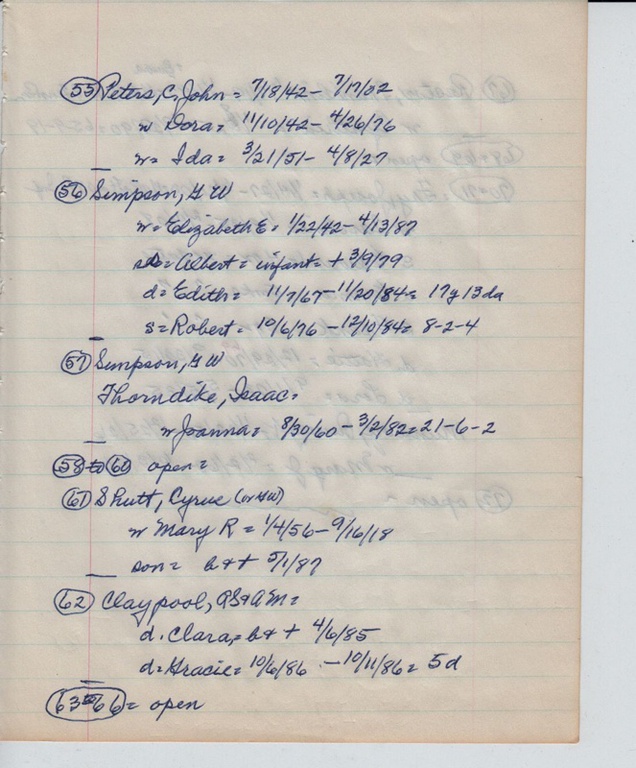 (55) Peters, C. John = 7/18/42 - 7/17/02
w Dora = 11/10/42 - 4/26/76
w = Ida = 3/21/51 - 4/8/27
(56) Simpson, G W
w = Elizabeth E = 1/22/42 - 4/13/87
Albert = infant = + 3/9/79
d = Edith = 11/7/67 - 11/20/84 = 17y 13da
s = Robert = 10/6/76 - 12/10/84 = 8-2-4
(57) Simpson, G W
Thorndike, Isaac =
w Joanna = 8/30/60 - 3/2/82 = 21-6-2
(58 to 60) open =
(61) Shutt, Cyrus (or HW)
w Mary R = 1/4/56 - 9/16/18
son = b & + 5/1/87
(62) Claypool, AS & AM =
d. Clara = b & + 4/6/85
d = Gracie = 10/6/86 - 10/11/86 = 5d
(63 to 66) = open